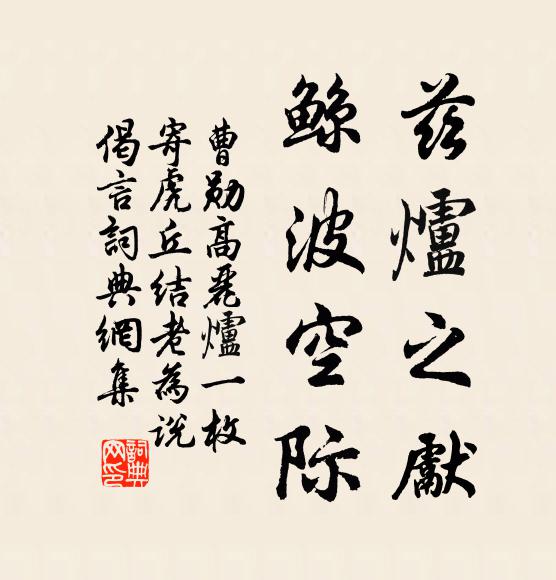 茲爐之獻
鲸波空际
曹勋高麗爐一枚
寄虎丘结老為说
偈言詞典網集
詞典
网印